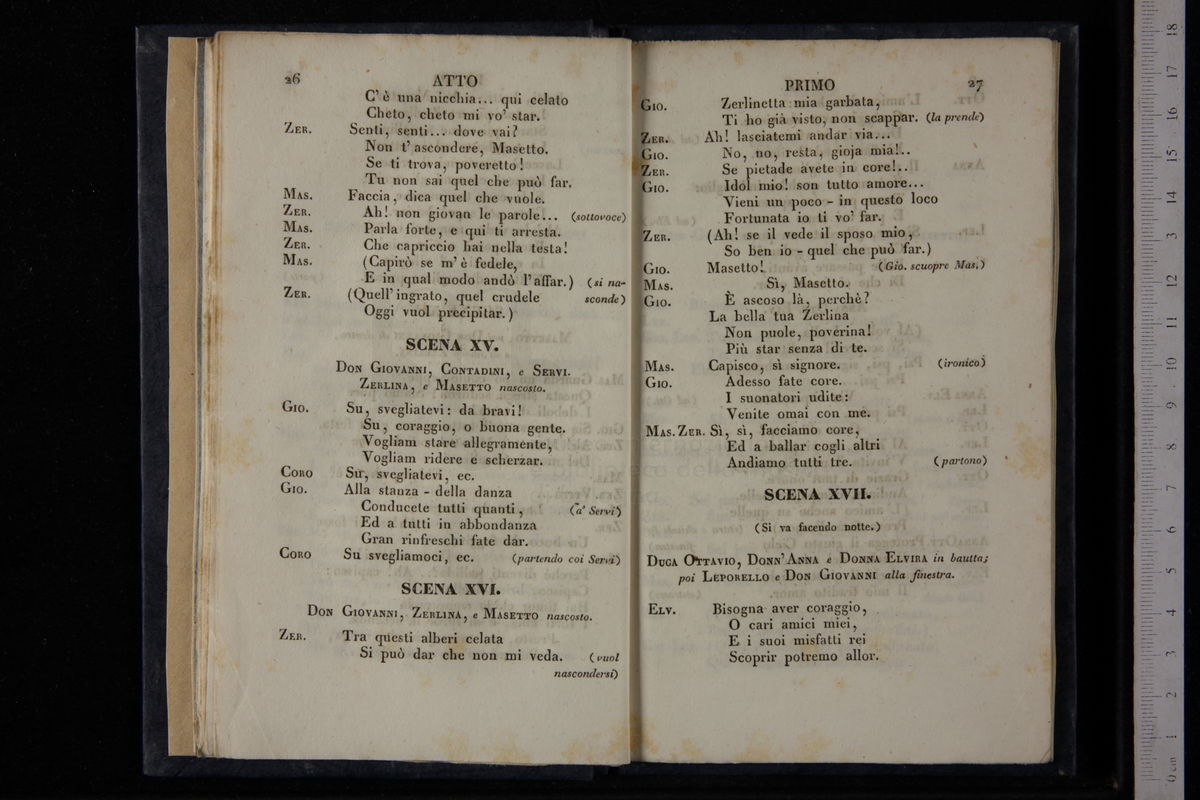 26 ATTO
C' è una nicchia... qui celato
Cheto, cheto mi vo' star.
Zer. Senti, senti... dove vai?
Non t' ascondere, Masetto.
Se ti trova, poveretto!
Tu non sai quel che può far.
Mas. Faccia, dica quel che vuole.
Zer. Ah! non giovan le parole... (sottovoce)
Mas. Parla forte, e qui ti arresta.
Zer. Che capriccio hai nella testa!
Mas. (Capirò se m' è fedele,
E in qual modo andò l' affar.) (si na-
Zer. (Quell' ingrato, quel crudele sconde)
Oggi vuol precipitar.)
SCENA XV.
Don Giovanni, Contadini, e Servi.
Zerlina, e Masetto nascosto.
Gio. Su, svegliatevi: da bravi!
Su, coraggio, o buona gente.
Vogliam stare allegramente,
Vogliam ridere e scherzar.
Coro Su, svegliatevi, ec.
Gio. Alla stanza - della danza
Conducete tutti quanti, (a' Servi)
Ed a tutti in abbondanza
Gran rinfreschi fate dar.
Coro Su svegliamoci, ec. (partendo coi Servi)
SCENA XVI.
Don Giovanni, Zerlina, e Masetto nascosto.
Zer. Tra questi alberi celata
Si può dar che non mi veda. (vuol
nascondersi)
PRIMO 27
Gio. Zerlinetta mia garbata,
Ti ho già visto, non scappar. (la prende)
Zer. Ah! lasciatemi andar via...
Gio. No, no, resta, gioja mia!..
Zer. Se pietade avete in core!..
Gio. Idol mio! son tutto amore...
Vieni un poco - in questo loco
Fortunata io ti vo' far.
Zer. (Ah! se il vede il sposo mio,
So ben io - quel che può far.)
Gio. Masetto! (Gio. scuopre Mas.)
Mas. Sì, Masetto.
Gio. È ascoso là, perchè?
La bella tua Zerlina
Non puole, poverina!
Più star senza di te.
Mas. Capisco, sì signore. (ironico)
Gio. Adesso fate core.
I suonatori udite:
Venite omai con me.
Mas. Zer. Sì, sì, facciamo core,
Ed a ballar cogli altri
Andiamo tutti tre. (partono)
SCENA XVII.
(Si va facendo notte.)
Duca Ottavio, Donn' Anna e Donna Elvira in bautta;
poi Leporello e Don Giovanni alla finestra.
Elv. Bisogna aver coraggio,
O cari amici miei,
E i suoi misfatti rei
Scoprir potremo allor.
0 cm 1 2 3 4 5 6 7 8 9 10 11 12 13 14 15 16 17 18